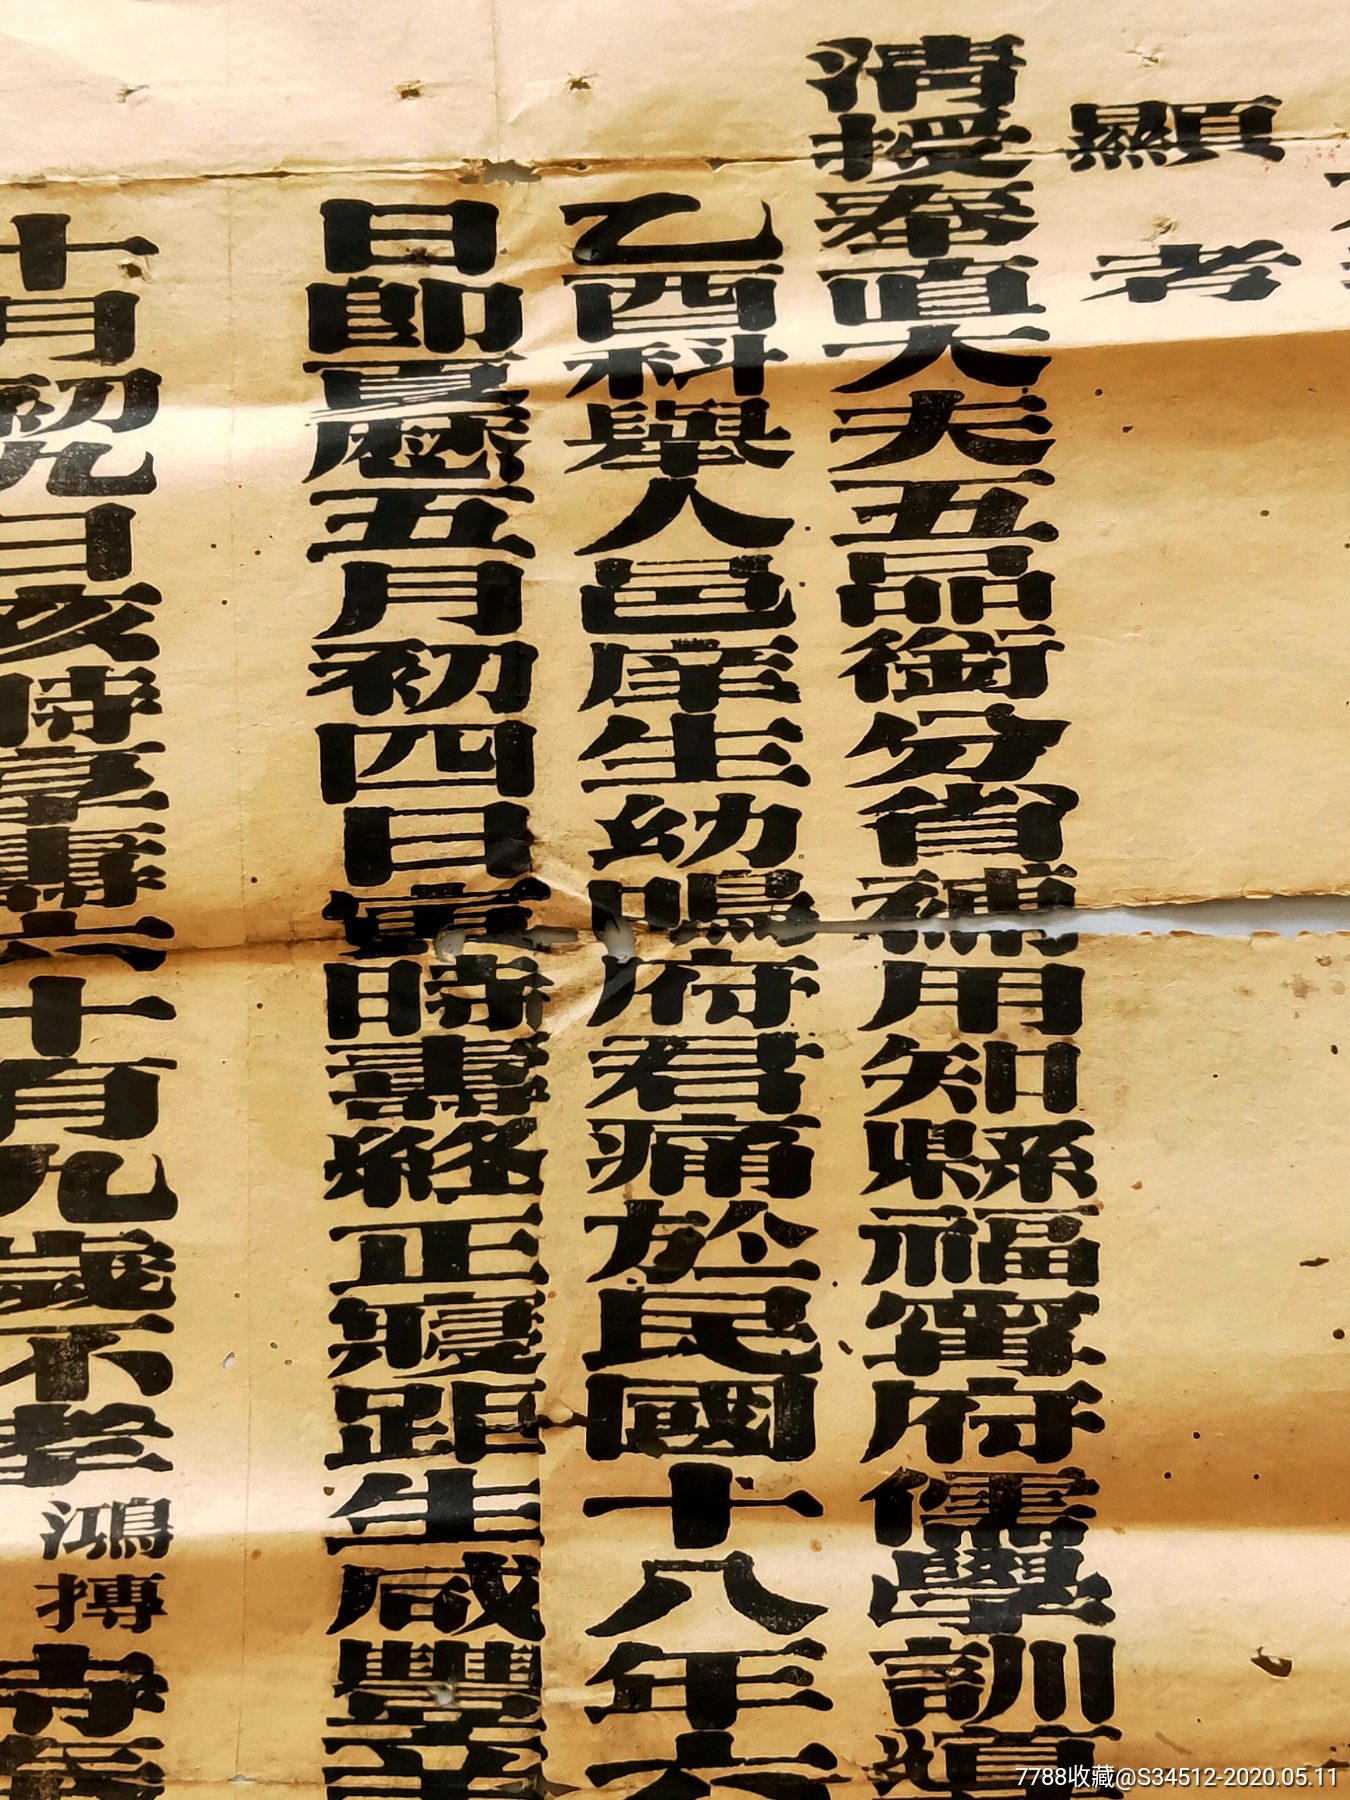 顯考
清授奉直大夫五品銜分省補用知縣福寧府儒學訓導
乙酉科舉人邑庠生幼鳴府君痛於民國十八年六
日即舊歷五月初四日寅時壽終正寢距生咸豐辛
十月初九日亥時享壽六十有九歲不孝鴻搏
7788收藏@S34512-2020.05.11